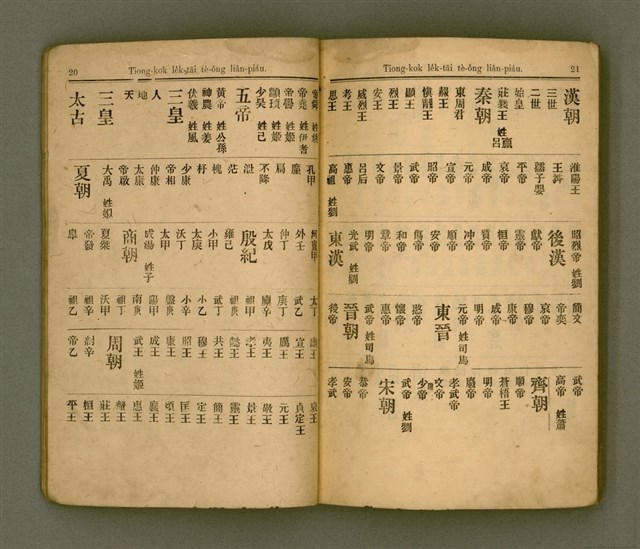 20
Tiong-kok le̍k-tāi tè-ông liân-piáu.
太古
三皇
天
地
人
三皇
伏羲 姓風
神農 姓姜
黃帝 姓公孫
五帝
少昊 姓己
顓頊 姓姬
帝嚳 姓姬
帝堯 姓伊耆
帝舜 姓姚
夏朝
大禹 姓姒
帝啟
太康
仲康
帝相
少康
杼
槐
芒
泄
不降
扃
廑
孔甲
皐
帝發
夏桀
商朝
成湯 姓子
太甲
沃丁
太庚
小甲
雍己
殷紀
太戊
仲丁
外壬
河亶甲
祖乙
祖辛
沃甲
祖丁
南庚
陽甲
盤庚
小辛
小乙
武丁
祖庚
祖甲
廩辛
庚丁
武乙
太丁
帝乙
紂辛
周朝
武王 姓姬
成王
康王
昭王
穆王
共王
懿王
孝王
夷王
厲王
宣王
幽王
平王
桓王
莊王
釐王
惠王
襄王
頃王
匡王
定王
簡王
靈王
景王
敬王
元王
貞定王
哀王
21
Tiong-kok le̍k-tāi tè-ông liân-piáu.
思王
考王
威烈王
安王
烈王
顯王
慎靚王
赧王
東周君
秦朝
莊襄王 姓嬴呂
始皇
二世
三世
漢朝
高祖 姓劉
惠帝
呂后
文帝
景帝
武帝
昭帝
宣帝
元帝
成帝
哀帝
平帝
孺子嬰
王莽
淮陽王
東漢
光武 姓劉
明帝
章帝
和帝
殤帝
安帝
順帝
冲帝
質帝
桓帝
靈帝
獻帝
後漢
昭烈帝 姓劉
後帝
晉朝
武帝 姓司馬
惠帝
懷帝
愍帝
東晉
元帝 姓司馬
明帝
成帝
康帝
穆帝
哀帝
帝奕
簡文
孝武
安帝
恭帝
宋朝
武帝 姓劉
少帝
文帝
孝武帝
廢帝
明帝
蒼梧王
順帝
齊朝
高帝 姓蕭
武帝